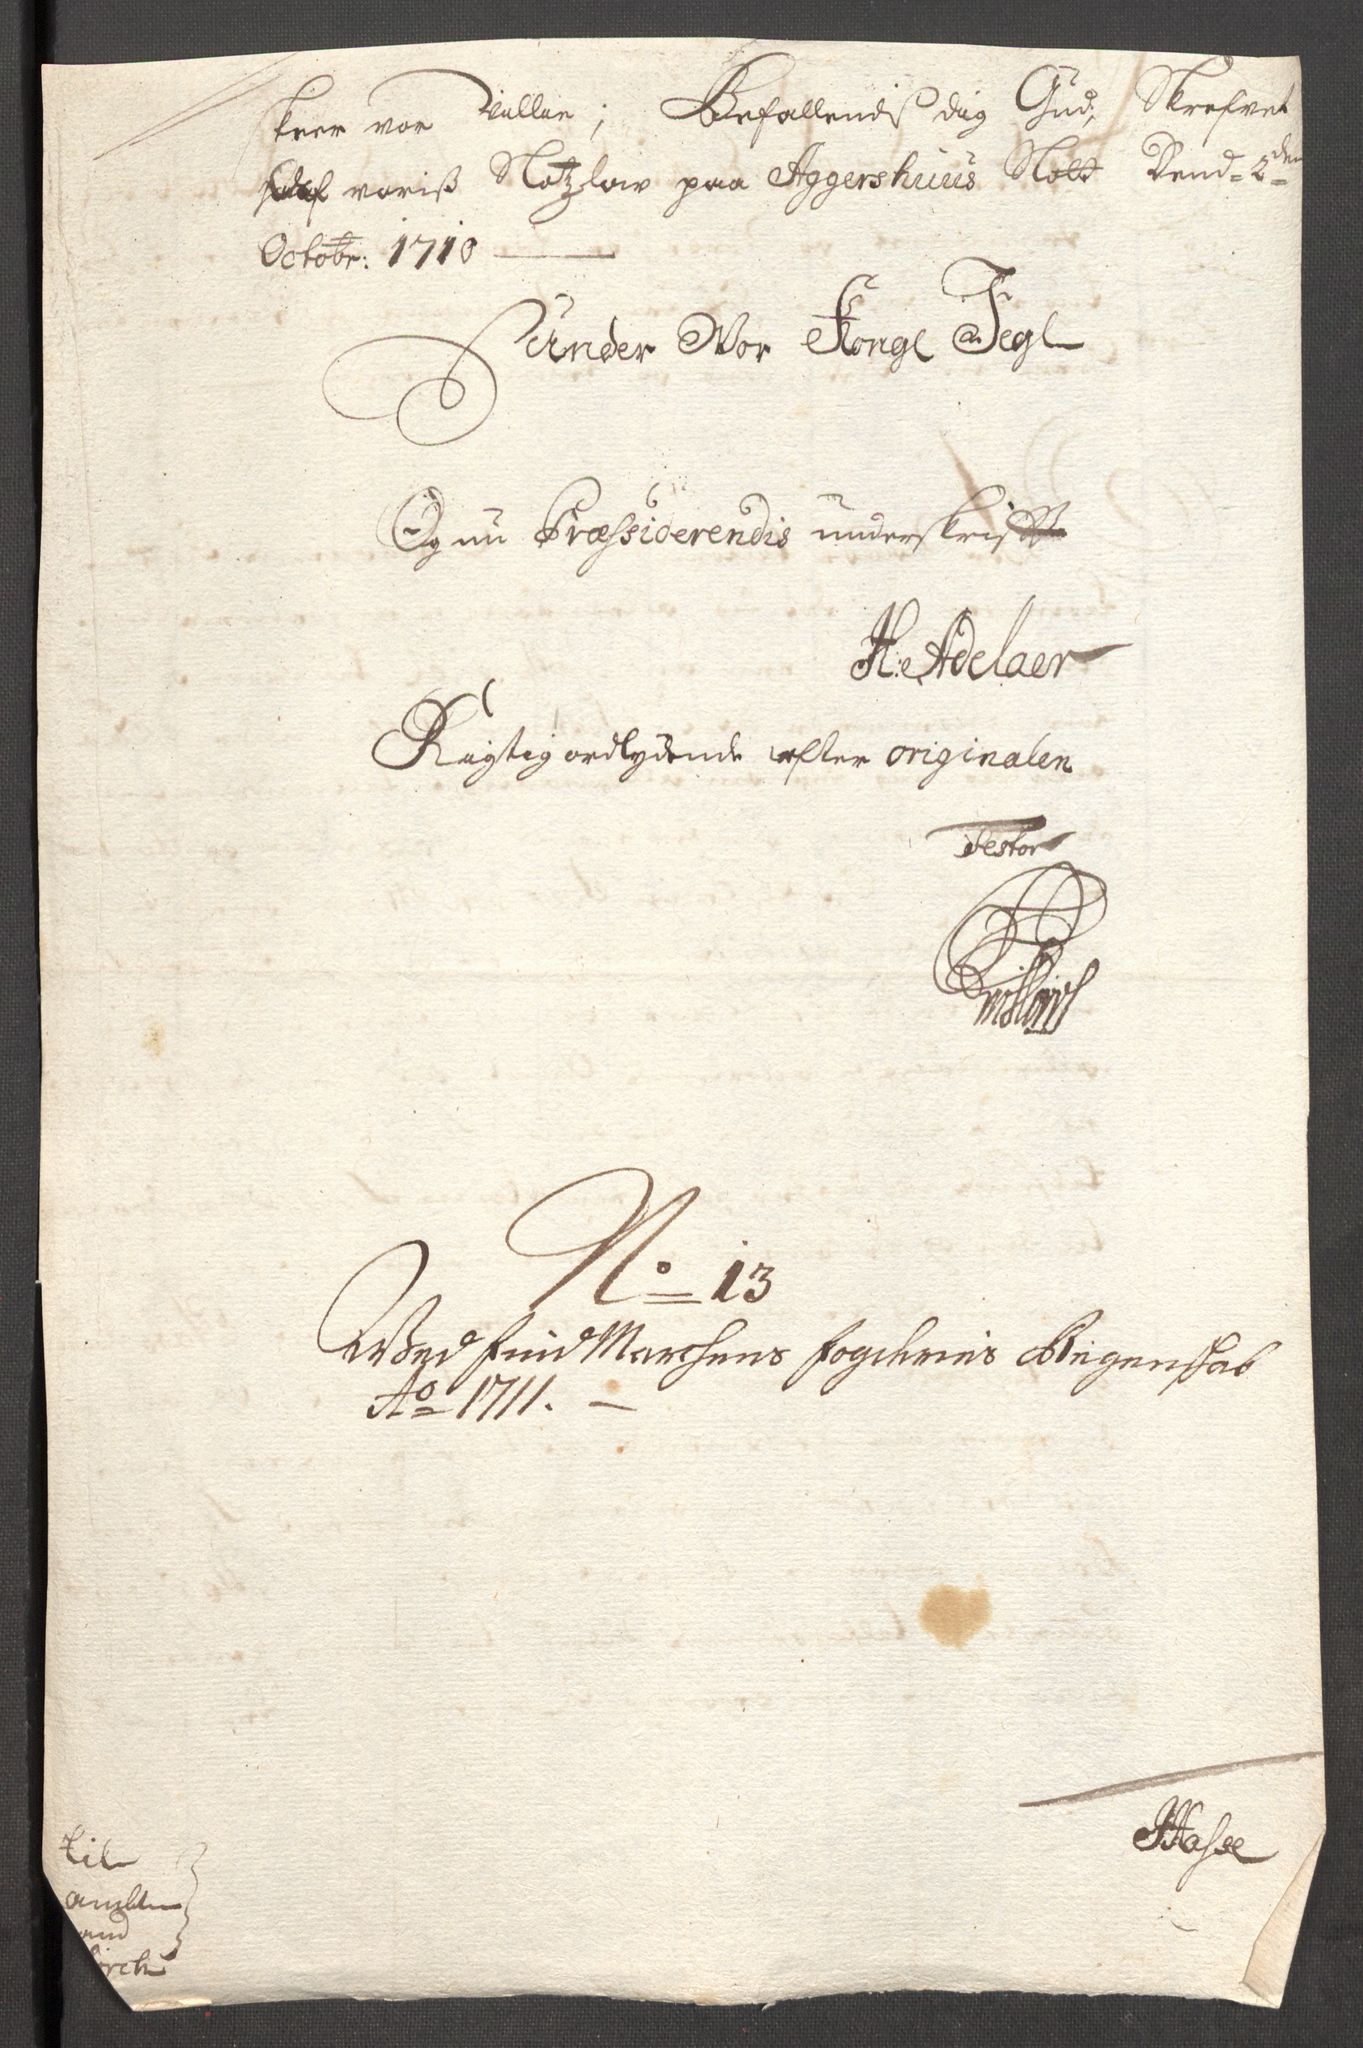 skeer vor Villie; Befallendis dig Gud, Skrefvet
voris Slotzlow paa Aggershuus Slott Dend 2den
Octobr: 1710
Under Vor Kongl Segl
Og nu Præssiderendis underskrifft
H: Adelaer
Rigtig ordlydende efter originalen
Testor
No 13
Wed Find Marchens fogderies Regenskab
Ao 1711.
Hasse
til
ambtm